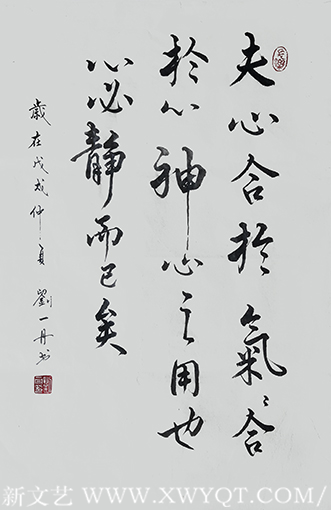 夫心合於氣氣合
於心神心之用也
心必静而已矣
歲在戊戌仲夏 劉一丹書
新文艺 WWW.XWYQT.COM